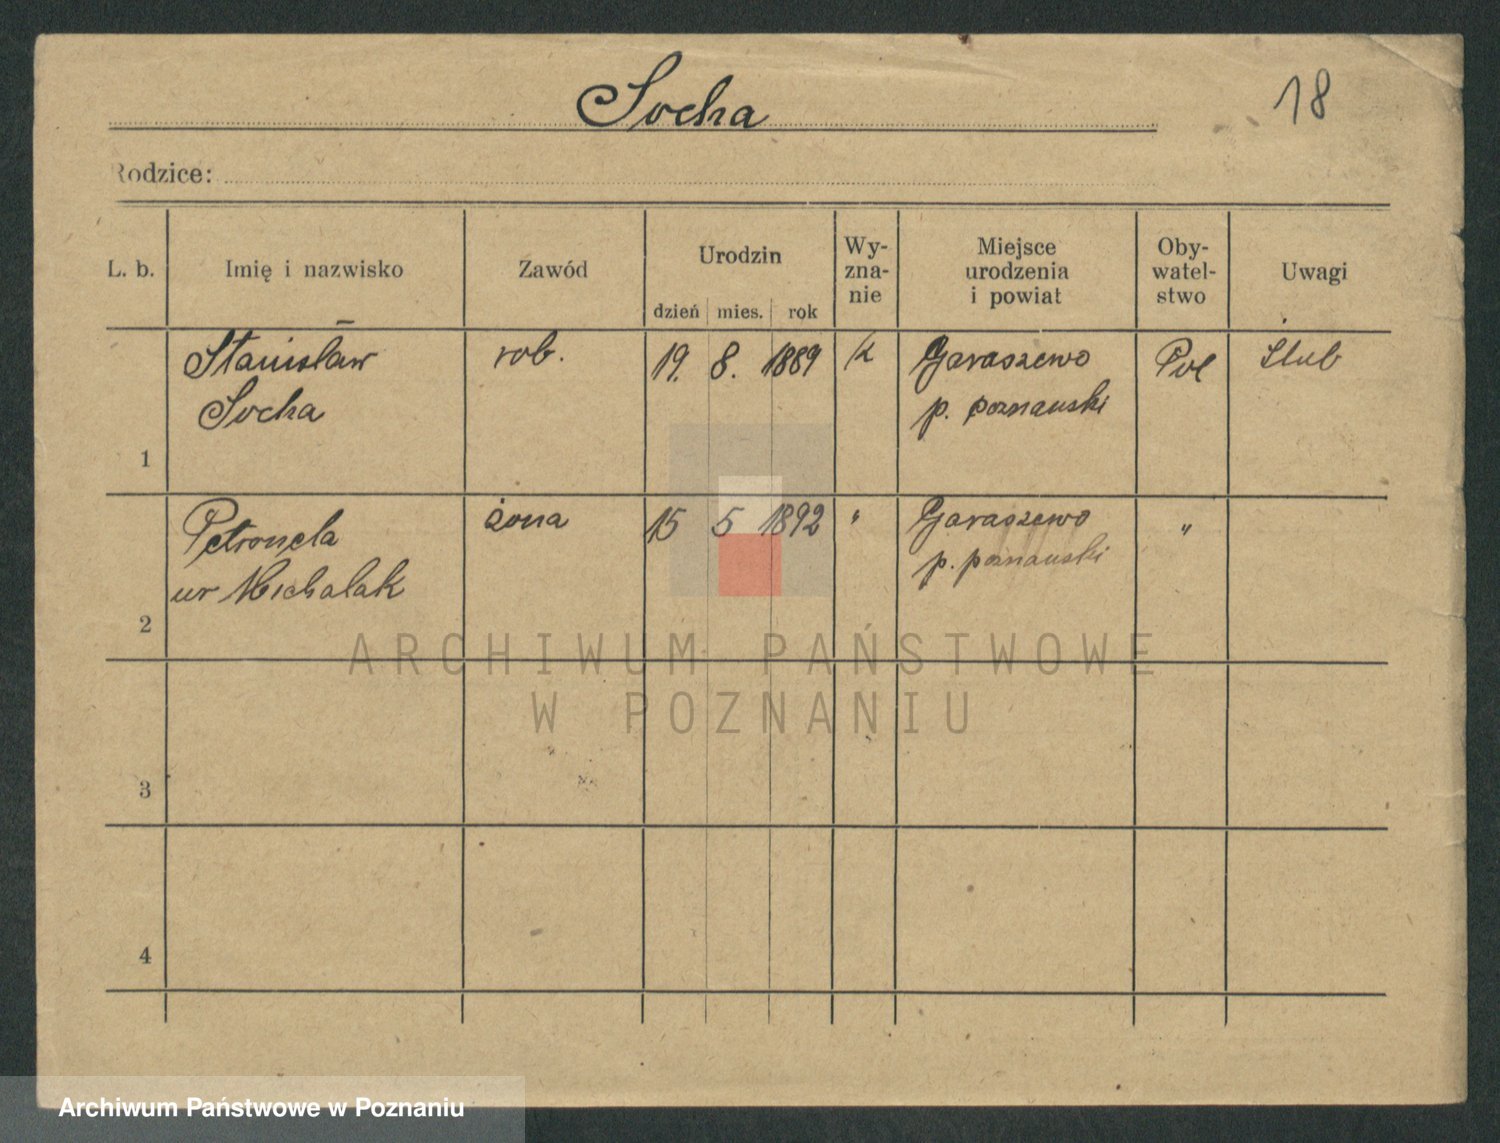 Socha
18
Rodzice:
L. b.
Imię i nazwisko
Zawód
Urodzin
dzień mies. rok
Wy-
zna-
nie
Miejsce
urodzenia
i powiat
Oby-
watel-
stwo
Uwagi
1
Stanisław
Socha
rob.
19. 8. 1889
K
Garaszewo
p. poznański
Pol
Ślub
2
Petronela
ur Michalak
żona
15 5 1892
"
Garaszewo
p. poznański
"
3
4
ARCHIWUM PAŃSTWOWE
W POZNANIU
Archiwum Państwowe w Poznaniu